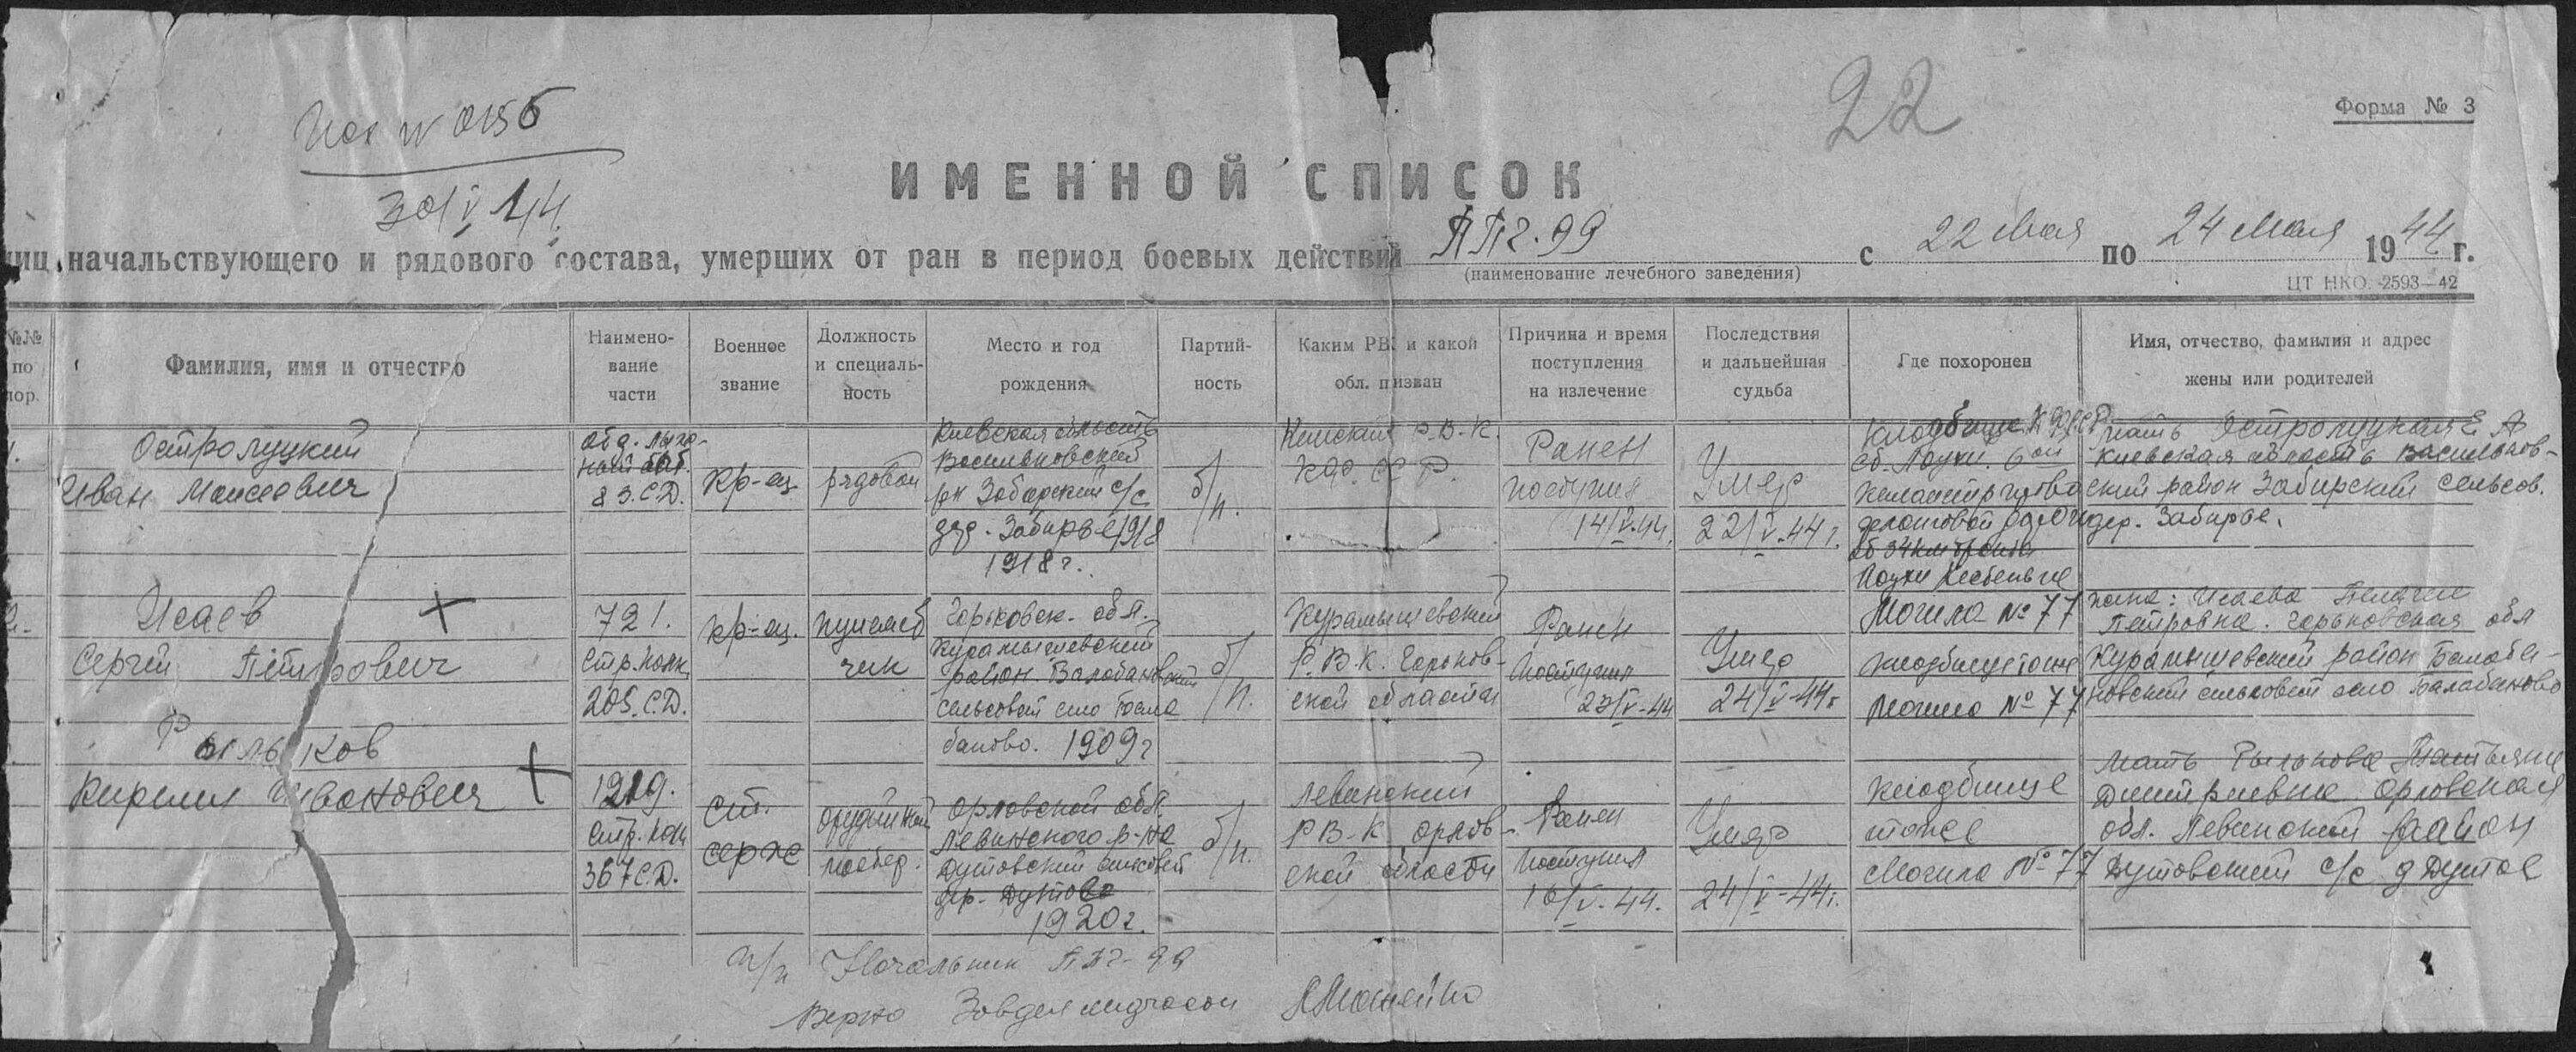 Исх № 0156
30/V 44.
22
Форма № 3
ИМЕННОЙ СПИСОК
лиц начальствующего и рядового состава, умерших от ран в период боевых действий ППГ. 99 с 22 мая по 24 мая 1944 г.
(наименование лечебного заведения)
ЦТ НКО. 2593—42
№№ по пор.
Фамилия, имя и отчество
Наимено-
вание
части
Военное
звание
Должность
и специаль-
ность
Место и год
рождения
Партий-
ность
Каким РВК и какой
обл. призван
Причина и время
поступления
на излечение
Последствия
и дальнейшая
судьба
Где похоронен
Имя, отчество, фамилия и адрес
жены или родителей
1.
Остролуцкий
Иван Моисеевич
83.С.Д.
кр-ец
рядовой
Киевская область
Васильковский
рн Забирский с/с
дер. Забирье 1918
1918 г.
б/п.
Кемский Р.В.К.
К.Ф.ССР.
Ранен
поступил
14/V.44.
Умер
22/V.44 г.
Кладбище КФССР
ст. Лоухи. 6ой
Лоухи Кестеньга
Могила № 77
мать Остролуцкая Е А
Киевская область Васильков-
ский район Забирский сельсов.
дер. Забирье.
2.
Исаев
Сергей Петрович
721.
стр. полк
205.С.Д.
кр-ец.
пулемет
чик
Горьковск. обл.
Курмышевский
район Балабановский
сельсовет село Бала
баново. 1909 г
б/п.
Курмышевский
Р.В.К. Горьков-
ской области
Ранен
поступил
23/V-44
Умер
24/V-44 г
кладбище тоже
Могила № 77
жена: Исаева Пелагея
Петровна. Горьковская обл
Курмышевский район Балаба-
новский сельсовет село Балабаново
Рыльков
Кирилл Иванович
1219.
стр. полк
367 С.Д.
ст.
серж
орудийный
Орловской обл.
Ливенского р-на
Дутовский сельсовет
дер. Дутово
1920 г.
б/п.
Ливенский
Р В-К Орлов-
ской области
Ранен
поступил
16/V-44.
Умер
24/V-44 г.
кладбище
тоже
Могила № 77
Мать Рылькова Татьяна
Дмитриевна Орловская
обл. Ливенский район
Дутовский с/с д Дутое
п/п Начальник ППГ-99
Верно Завделопроизв.